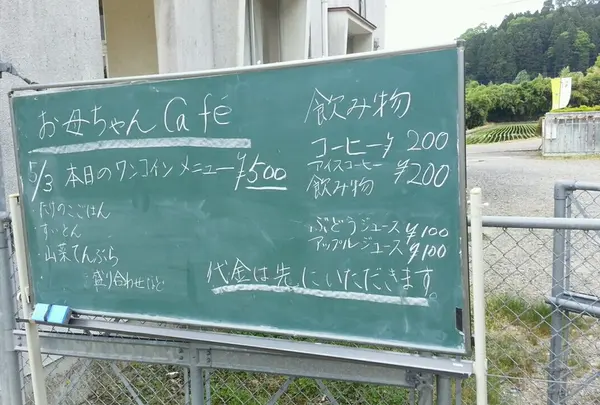 お母ちゃん Café
5/3 本日のワンコインメニュー ¥500
・たけのこごはん
・すいとん
・山菜てんぷら
盛り合わせなど
飲み物
コーヒー ¥200
アイスコーヒー ¥200
飲み物
ぶどうジュース ¥100
アップルジュース ¥100
代金は先にいただきます